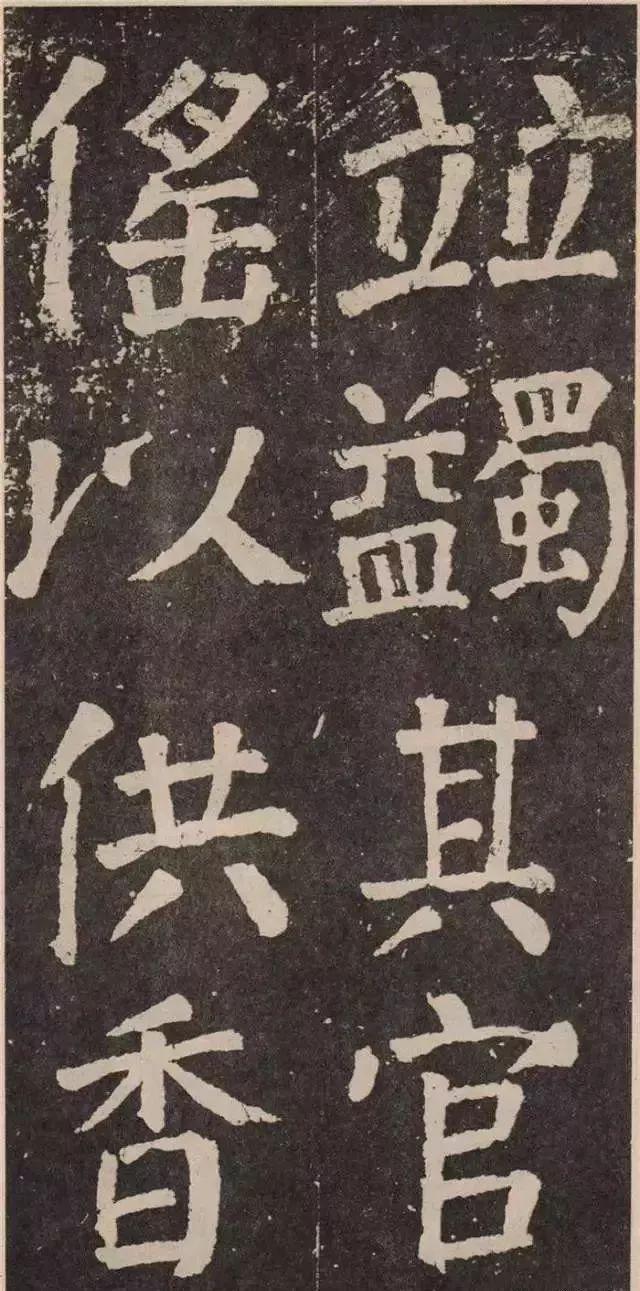 竝蠲其官
傜以供香